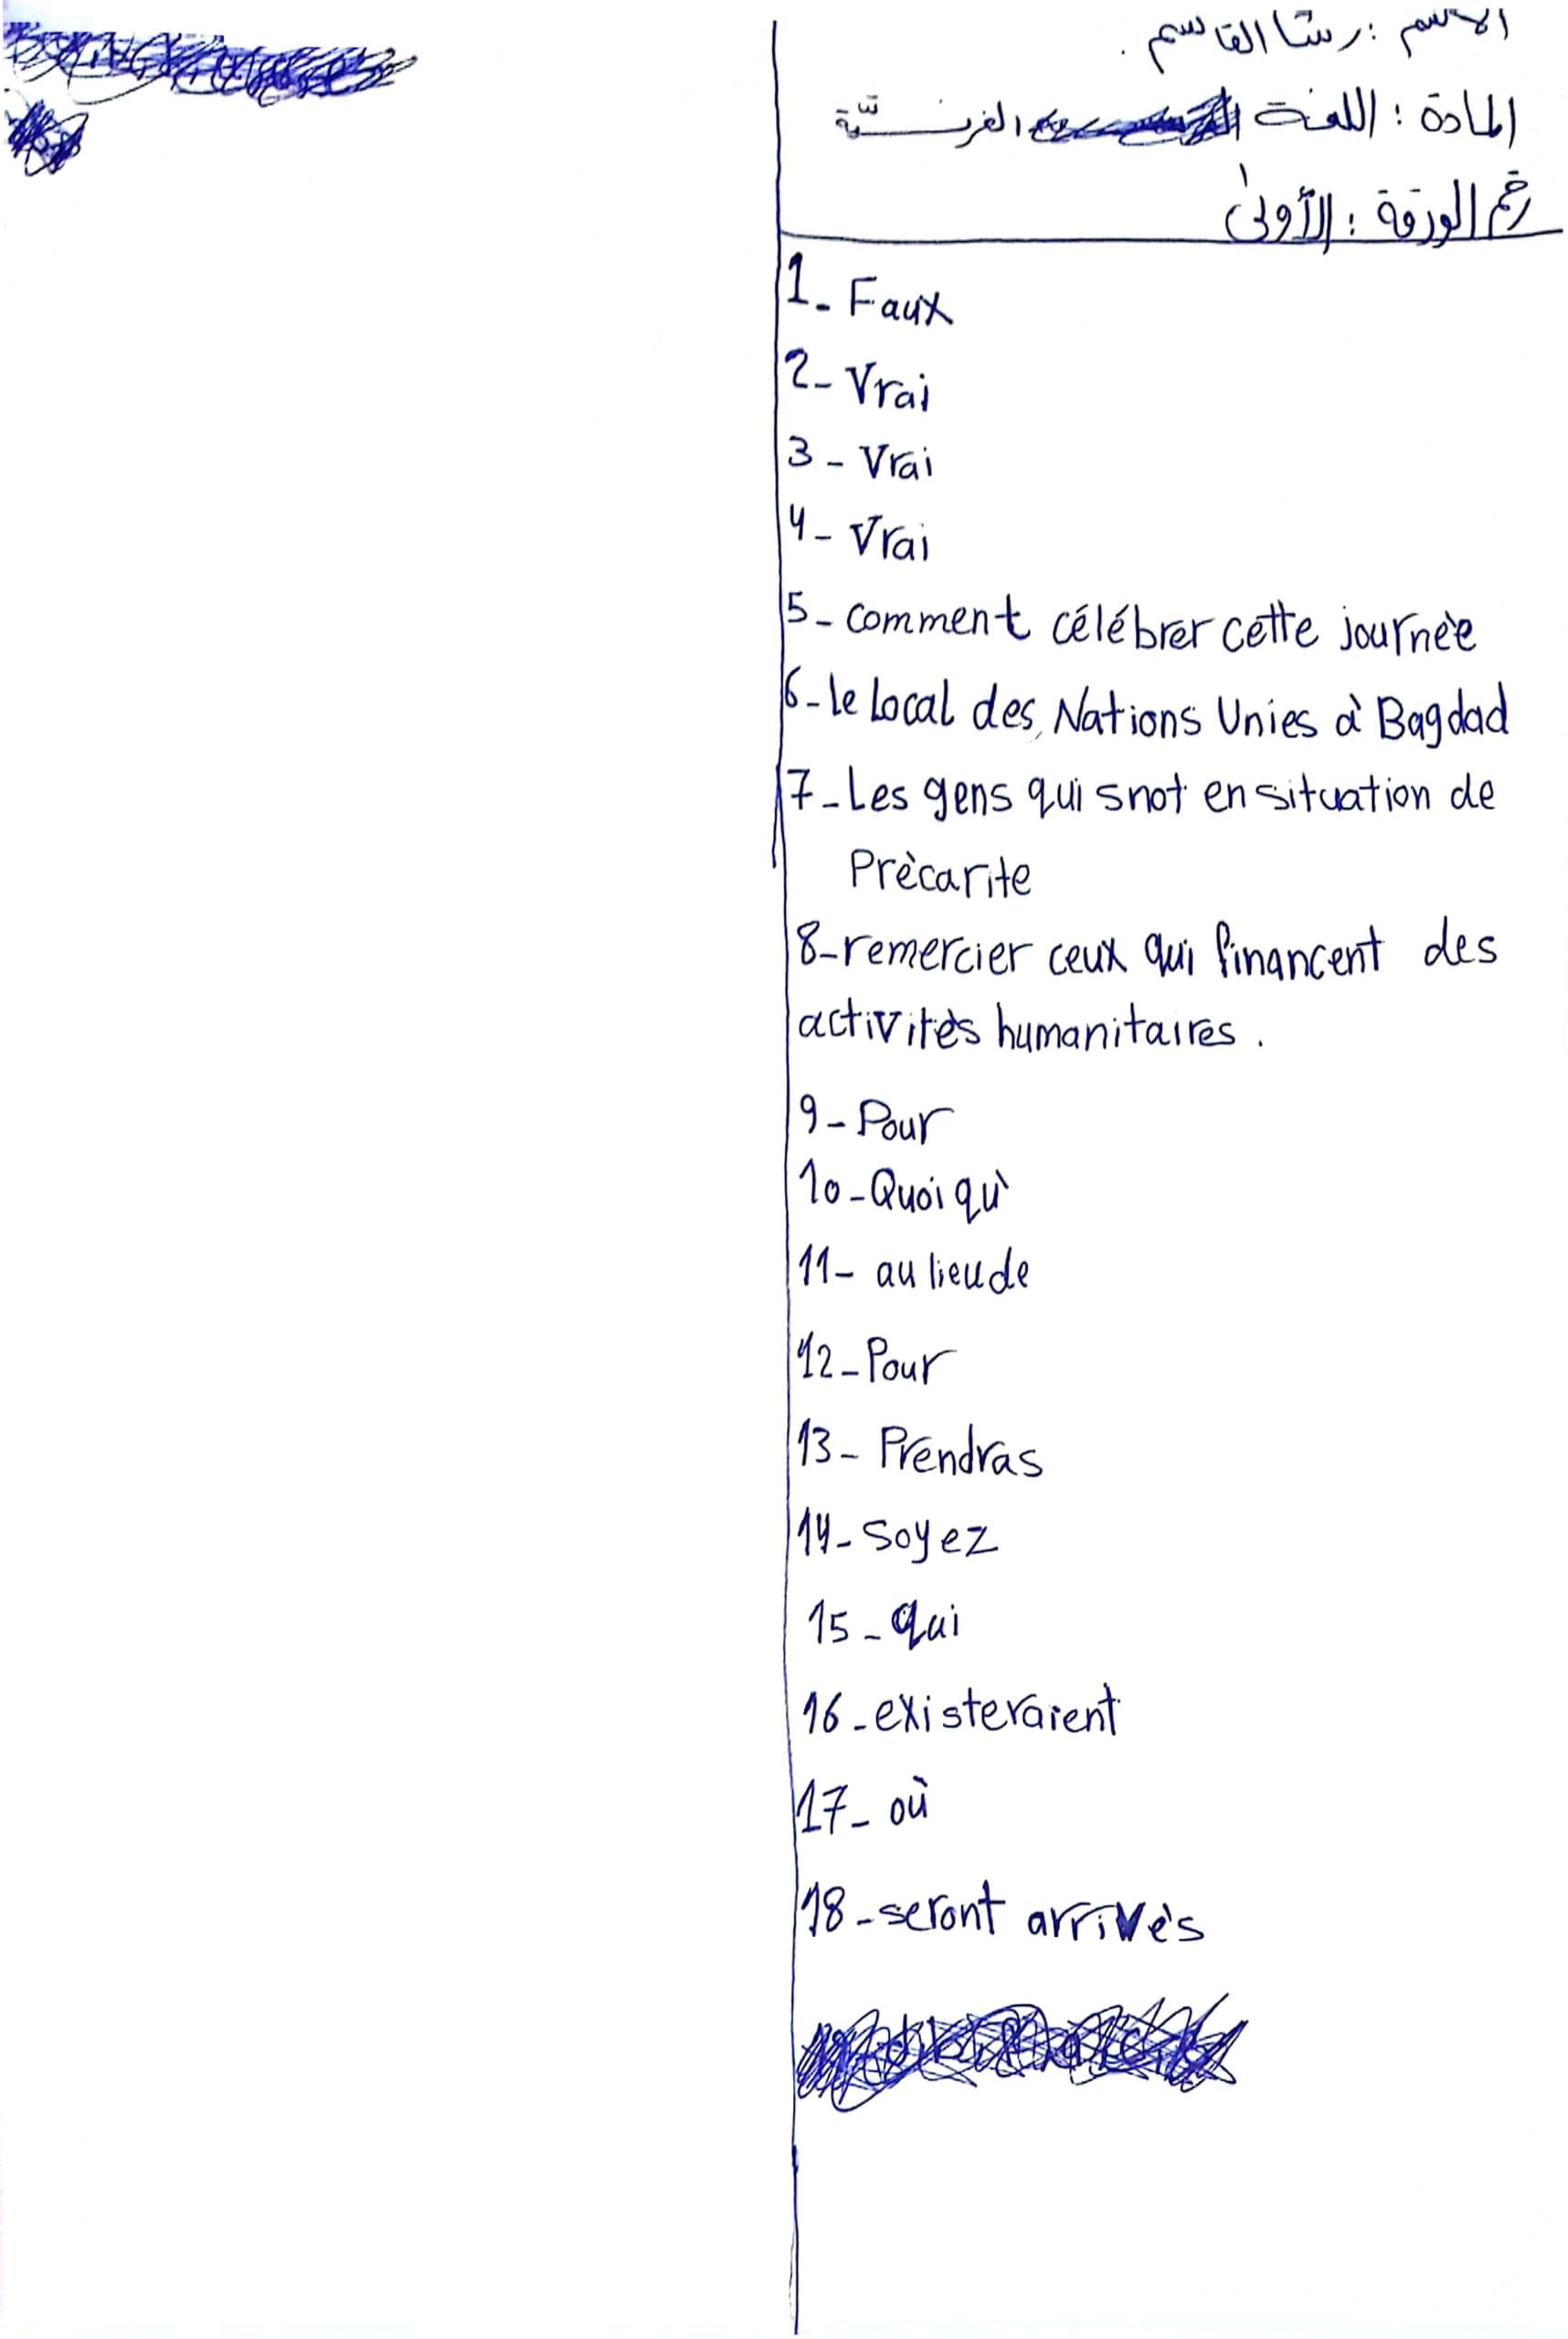 الاسم : رشا القاسم .
المادة : اللغة الفرنسيّة
رقم الورقة : الأولى
1- Faux
2- Vrai
3- Vrai
4- Vrai
5- comment célébrer cette journèe
6- le local des Nations Unies à Bagdad
7- Les gens qui snot en situation de
Prècarite
8- remercier ceux qui financent des
activitès humanitaires .
9- Pour
10- Quoi qu'
11- au lieu de
12- Pour
13- Prendras
14- Soyez
15- qui
16- existeraient
17- où
18- seront arrivès